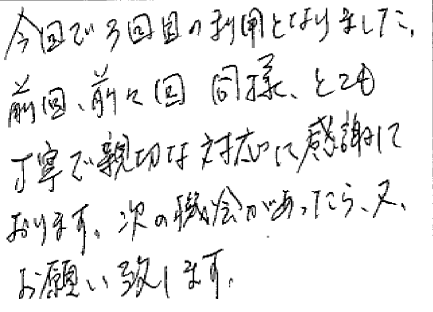 今回で3回目の利用となりました。
前回、前々回 同様、とても
丁寧で親切な対応に感謝して
おります。次の機会があったら、又、
お願い致します。